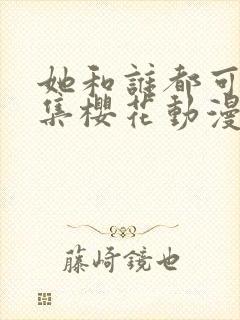 她和誰都可
集櫻花動漫
藤崎鏡也